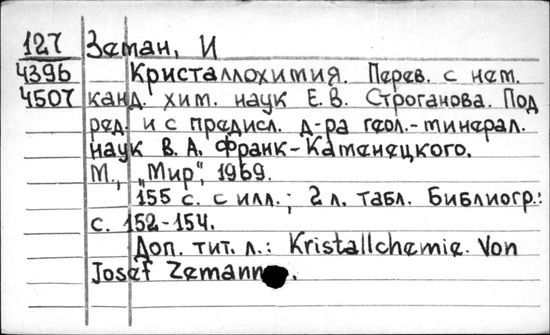 127 Земан, И
4396 Кристаллохимия. Перев. с нем.
4507 канд. хим. наук Е.В. Строганова. Под
ред. и с предисл. д-ра геол.-минерал.
наук В.А. Франк-Каменецкого.
М., „Мир", 1969.
155 с. с илл.; 2 л. табл. Библиогр.:
с. 152-154.
Доп. тит. л.: Kristallchemie. Von
Josef Zemann.